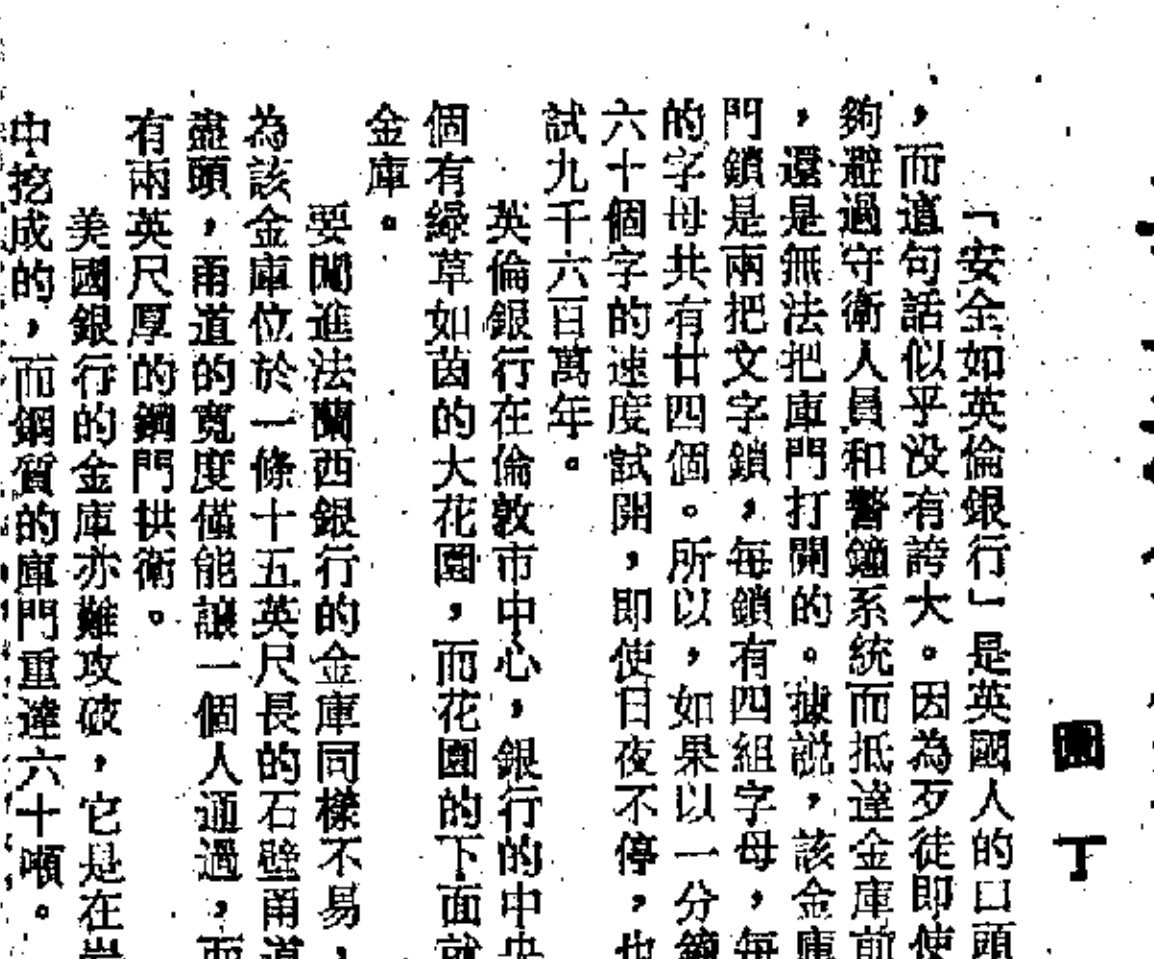 園丁
「安全如英倫銀行」是英國人的口頭
，而這句話似乎没有誇大。因為歹徒即使
夠避過守衛人員和警鐘系統而抵達金庫前
，還是無法把庫門打開的。據説，該金庫
門鎖是兩把文字鎖，每鎖有四組字母，每
的字母共有廿四個。所以，如果以一分鐘
六十個字的速度試開，即使日夜不停，也
試九千六百萬年。
英倫銀行在倫敦市中心，銀行的中央
個有綠草如茵的大花園，而花園的下面就
金庫。
要闖進法蘭西銀行的金庫同樣不易，
為該金庫位於一條十五英尺長的石壁甬道
盡頭，甬道的寬度僅能讓一個人通過，而
有兩英尺厚的鋼門拱衛。
美國銀行的金庫亦難攻破，它是在岩
中挖成的，而鋼質的庫門重達六十噸。